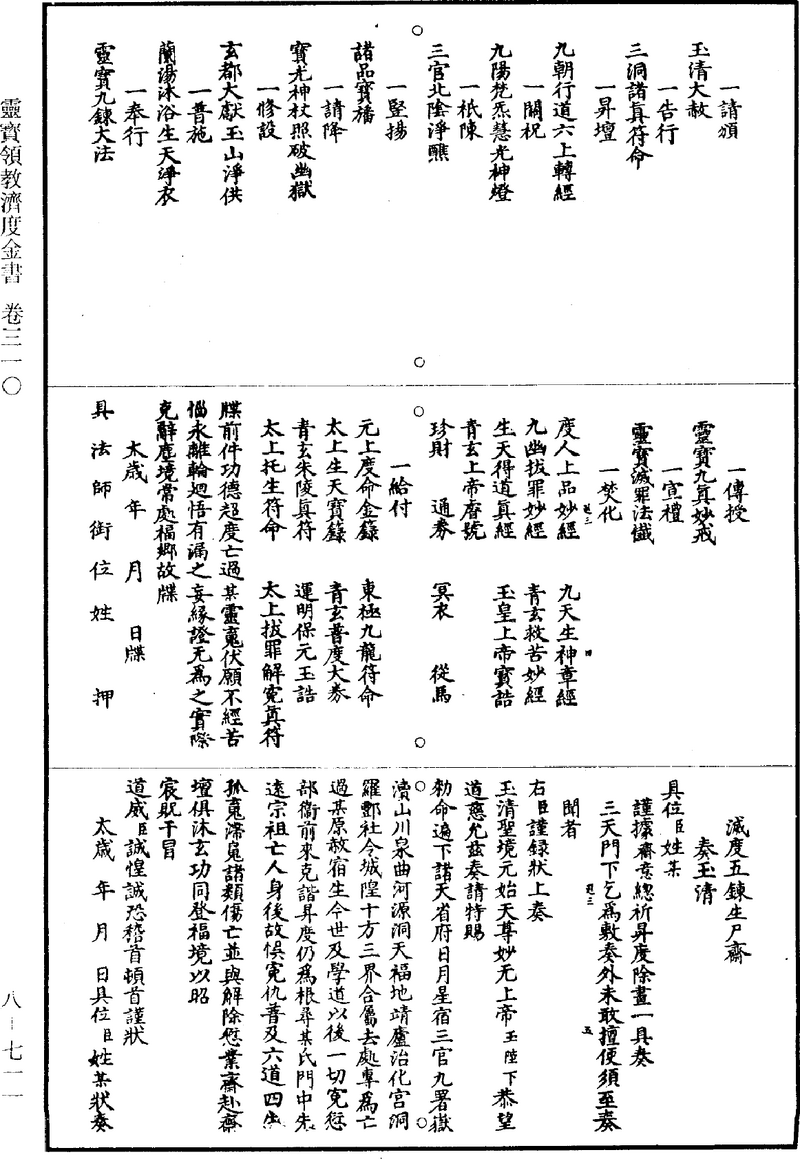 靈寶領教濟度金書　卷三一〇
八－七一一
一請頒
玉清大赦
一告行
三洞諸真符命
一昇壇
九朝行道六上轉經
一關祝
九陽梵炁慧光神燈
一祇陳
三官北陰淨醮
一竪揚
諸品寶旛
一請降
寶光神杖照破幽獄
一修設
玄都大獻玉山淨供
一普施
蘭湯沐浴生天淨衣
一奉行
靈寶九鍊大法
一傳授
靈寶九真妙戒
一宣禮
靈寶滅罪法懺
一焚化
度人上品妙經　九天生神章經
九幽拔罪妙經　青玄救苦妙經
生天得道真經　玉皇上帝寶誥
青玄上帝廥號
珍財　通券　冥衣　從馬
一給付
元上度命金籙　東極九龍符命
太上生天寶籙　青玄普度大券
青玄朱陵真符　運明保元玉誥
太上托生符命　太上拔罪解寃真符
牒前件功德超度亡過某靈魂伏願不經苦
惱永離輪廻悟有漏之妄緣證无爲之實際
克辭塵境常處福鄉故牒
太歲　年　月　日牒
具法師銜位姓　押
滅度五鍊生尸齋
奏玉清
具位臣姓某
謹據齋意總祈昇度除畫一具奏
三天門下乞爲敷奏外未敢擅便須至奏
聞者
右臣謹録狀上奏
玉清聖境元始天尊妙无上帝玉陛下恭望
道慈允兹奏請特賜
勑命遍下諸天省府日月星宿三官九署嶽
瀆山川泉曲河源洞天福地靖廬治化宫洞
羅酆社令城隍十方三界合屬去處專爲亡
過某原赦宿生今世及學道以後一切寃愆
部衛前來克諧昇度仍爲根尋某氏門中先
遠宗祖亡人身後故悞寃仇普及六道四生
孤魂滯魄諸類傷亡並與解除愆業齋赴齋
壇俱沐玄功同登福境以昭
宸貺干冒
道威臣誠惶誠恐稽首頓首謹狀
太歲　年　月　日具位臣姓某狀奏